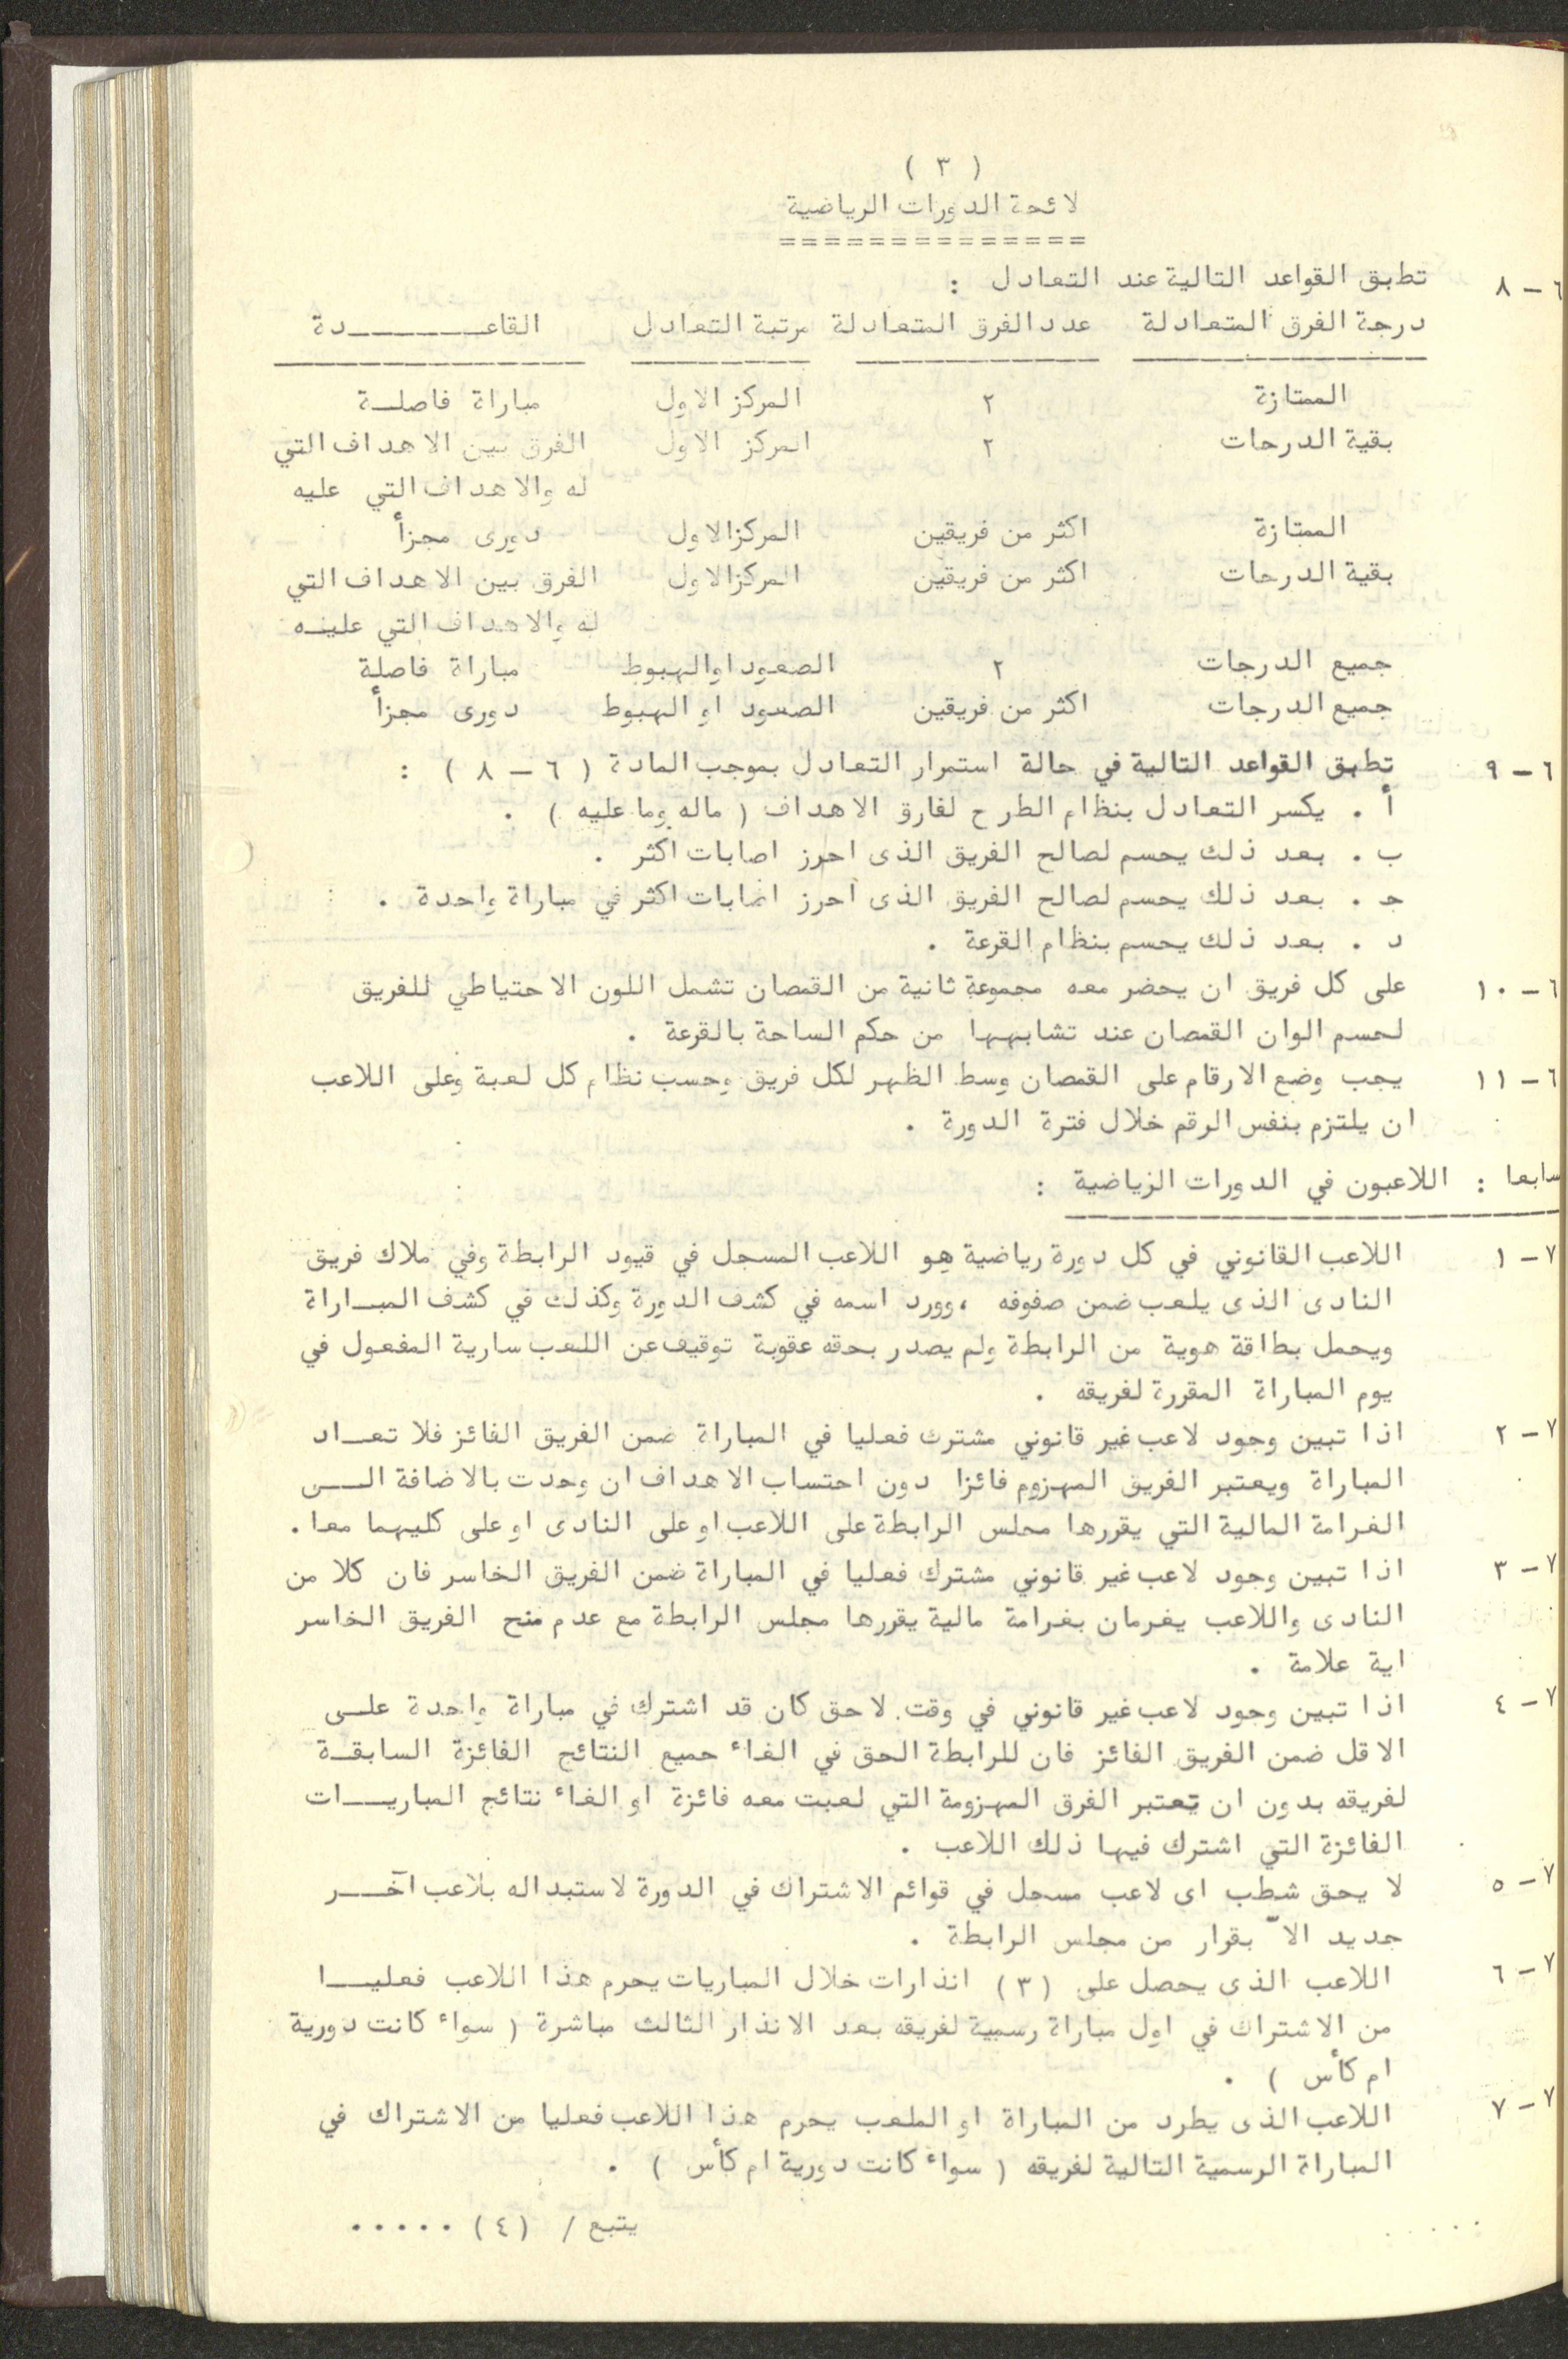 ( ٣ )
لائحة الدورات الرياضية
==============
٦ - ٨ تطبق القواعد التالية عند التعادل :
درجة الفرق المتعادلة عدد الفرق المتعادلة مرتبة التعادل القاعــــــدة
الممتازة ٢ المركز الاول مباراة فاصلــة
بقية الدرجات ٢ المركز الاول الفرق بين الاهداف التي
له والاهداف التي عليه
الممتازة اكثر من فريقين المركز الاول دورى مجزأ
بقية الدرجات اكثر من فريقين المركز الاول الفرق بين الاهداف التي
له والاهداف التي عليـه
جميع الدرجات ٢ الصعود او الهبوط مباراة فاصلة
جميع الدرجات اكثر من فريقين الصعود او الهبوط دورى مجزأ
٦ - ٩ تطبق القواعد التالية في حالة استمرار التعادل بموجب المادة ( ٦ - ٨ ) :
أ . يكسر التعادل بنظام الطرح لفارق الاهداف ( ماله وما عليه ) .
ب . بعد ذلك يحسم لصالح الفريق الذى احرز اصابات اكثر .
جـ . بعد ذلك يحسم لصالح الفريق الذى احرز اصابات اكثر في مباراة واحدة .
د . بعد ذلك يحسم بنظام القرعة .
٦ - ١٠ على كل فريق ان يحضر معه مجموعة ثانية من القمصان تشمل اللون الاحتياطي للفريق
لحسم الوان القمصان عند تشابهها من حكم الساحة بالقرعة .
٦ - ١١ يجب وضع الارقام على القمصان وسط الظهر لكل فريق وحسب نظام كل لعبة وعلى اللاعب
ان يلتزم بنفس الرقم خلال فترة الدورة .
سابعا : اللاعبون في الدورات الرياضية :
٧ - ١ اللاعب القانوني في كل دورة رياضية هو اللاعب المسجل في قيود الرابطة وفي ملاك فريق
النادى الذى يلعب ضمن صفوفه ، وورد اسمه في كشف الدورة وكذلك في كشف المبــاراة
ويحمل بطاقة هوية من الرابطة ولم يصدر بحقه عقوبة توقيف عن اللعب سارية المفعول في
يوم المباراة المقررة لفريقه .
٧ - ٢ اذا تبين وجود لاعب غير قانوني مشترك فعليا في المباراة ضمن الفريق الفائز فلا تعــاد
المباراة ويعتبر الفريق المهزوم فائزا دون احتساب الاهداف ان وجدت بالاضافة الـــى
الغرامة المالية التي يقررها مجلس الرابطة على اللاعب او على النادى او على كليهما معا .
٧ - ٣ اذا تبين وجود لاعب غير قانوني مشترك فعليا في المباراة ضمن الفريق الخاسر فان كلا من
النادى واللاعب يغرمان بغرامة مالية يقررها مجلس الرابطة مع عدم منح الفريق الخاسر
اية علامة .
٧ - ٤ اذا تبين وجود لاعب غير قانوني في وقت لاحق كان قد اشترك في مباراة واحدة علــى
الاقل ضمن الفريق الفائز فان للرابطة الحق في الغاء جميع النتائج الفائزة السابقــة
لفريقه بدون ان تعتبر الفرق المهزومة التي لعبت معه فائزة او الغاء نتائج المباريــات
الفائزة التي اشترك فيها ذلك اللاعب .
٧ - ٥ لا يحق شطب اى لاعب مسجل في قوائم الاشتراك في الدورة لاستبداله بلاعب آخــر
جديد الاّ بقرار من مجلس الرابطة .
٧ - ٦ اللاعب الذى يحصل على (٣) انذارات خلال المباريات يحرم هذا اللاعب فعليــا
من الاشتراك في اول مباراة رسمية لفريقه بعد الانذار الثالث مباشرة ( سواء كانت دورية
ام كأس ) .
٧ - ٧ اللاعب الذى يطرد من المباراة او الملعب يحرم هذا اللاعب فعليا من الاشتراك في
المباراة الرسمية التالية لفريقه ( سواء كانت دورية ام كأس ) .
يتبع / (٤) .....